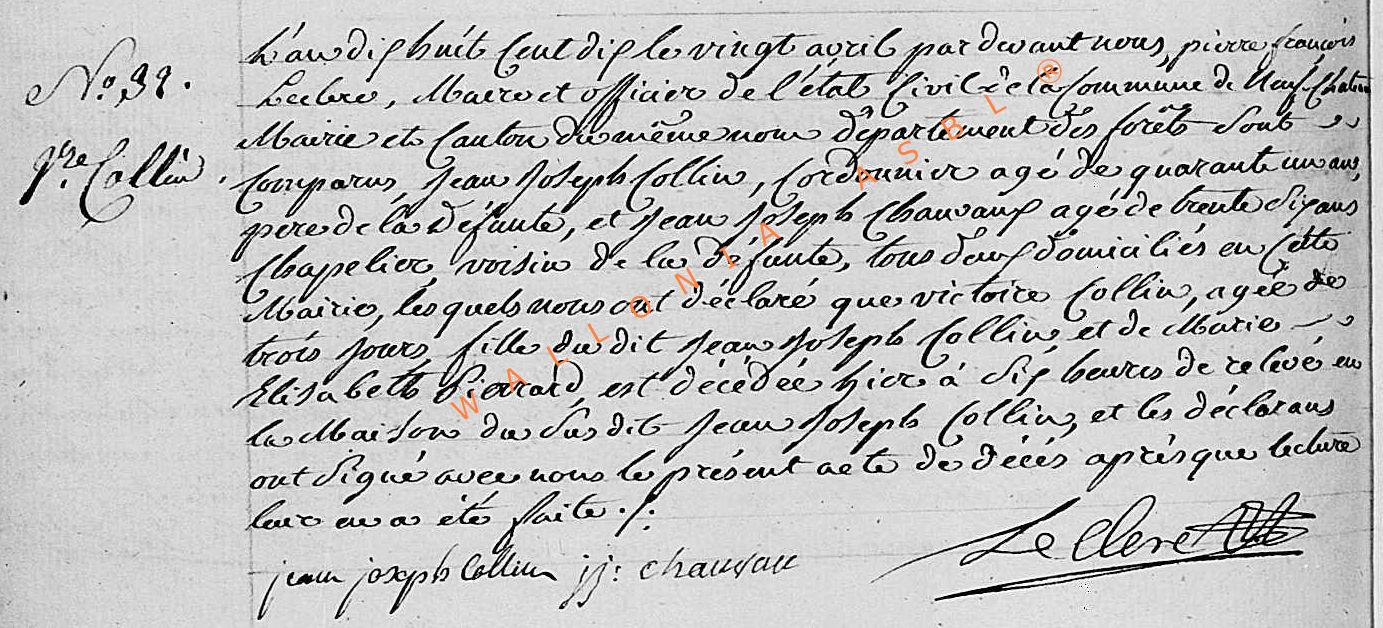 N.o 32.
V.re Collin.
L'an dix huit Cent dix le vingt avril par devant nous, pierre françois
Leclerc, Maire et officier de l'état Civil de la Commune de Neufchateau
Mairie et Canton du même nom département des forêts Sont
Comparus, Jean Joseph Collin, Cordonnier agé de quarante un ans,
pere de la Défunte, et Jean Joseph Chauvaux agé de trente Six ans
Chapelier voisin de la défunte, tous deux domiciliés en Cette
Mairie, les quels nous ont déclaré que victoire Collin, agée de
trois Jours, fille du dit Jean Joseph Collin et de Marie
Elisabeth Pierrard, est décédée hier à Six heures de relevé en
la Maison du Susdit Jean Joseph Collin, et les déclarans
ont Signé avec nous le présent acte de décés après que lecture
leur en a été faite ./.
jean joseph Collin jj: chauvau
Le Clerc
WALLONIA ASBL ®